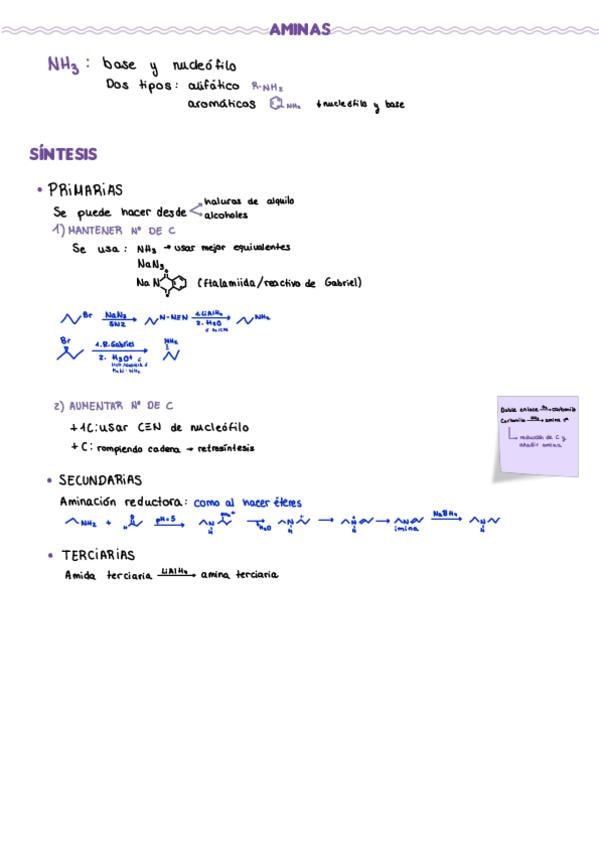 AMINAS
NH3: base y nucleófilo
Dos tipos: alifático R-NH2
aromáticos NH2 +nucleófilo y base
SÍNTESIS
• PRIMARIAS
Se puede hacer desde haluros de alquilo
alcoholes
1) MANTENER Nº DE C
Se usa: NH3 → usar mejor equivalentes
NaN3
Na N (ftalamiida/reactivo de Gabriel)
Br NaN3 SN2 N-N≡N 1. LiAlH4 2. H2O NH2
Br 1. R. Gabriel 2. H3O+ NH2
2) AUMENTAR Nº DE C
+1C: usar C≡N de nucleófilo
+C: rompiendo cadena → retrosíntesis
Doble enlace → carbonilo
Carbonilo → amina 1ª
reducción de C y
añadir amina
• SECUNDARIAS
Aminación reductora: como al hacer éteres
NH2 + H pH=5 N H H2O N H N H N imina NaBH4 N H
• TERCIARIAS
Amida terciaria LiAlH4 → amina terciaria